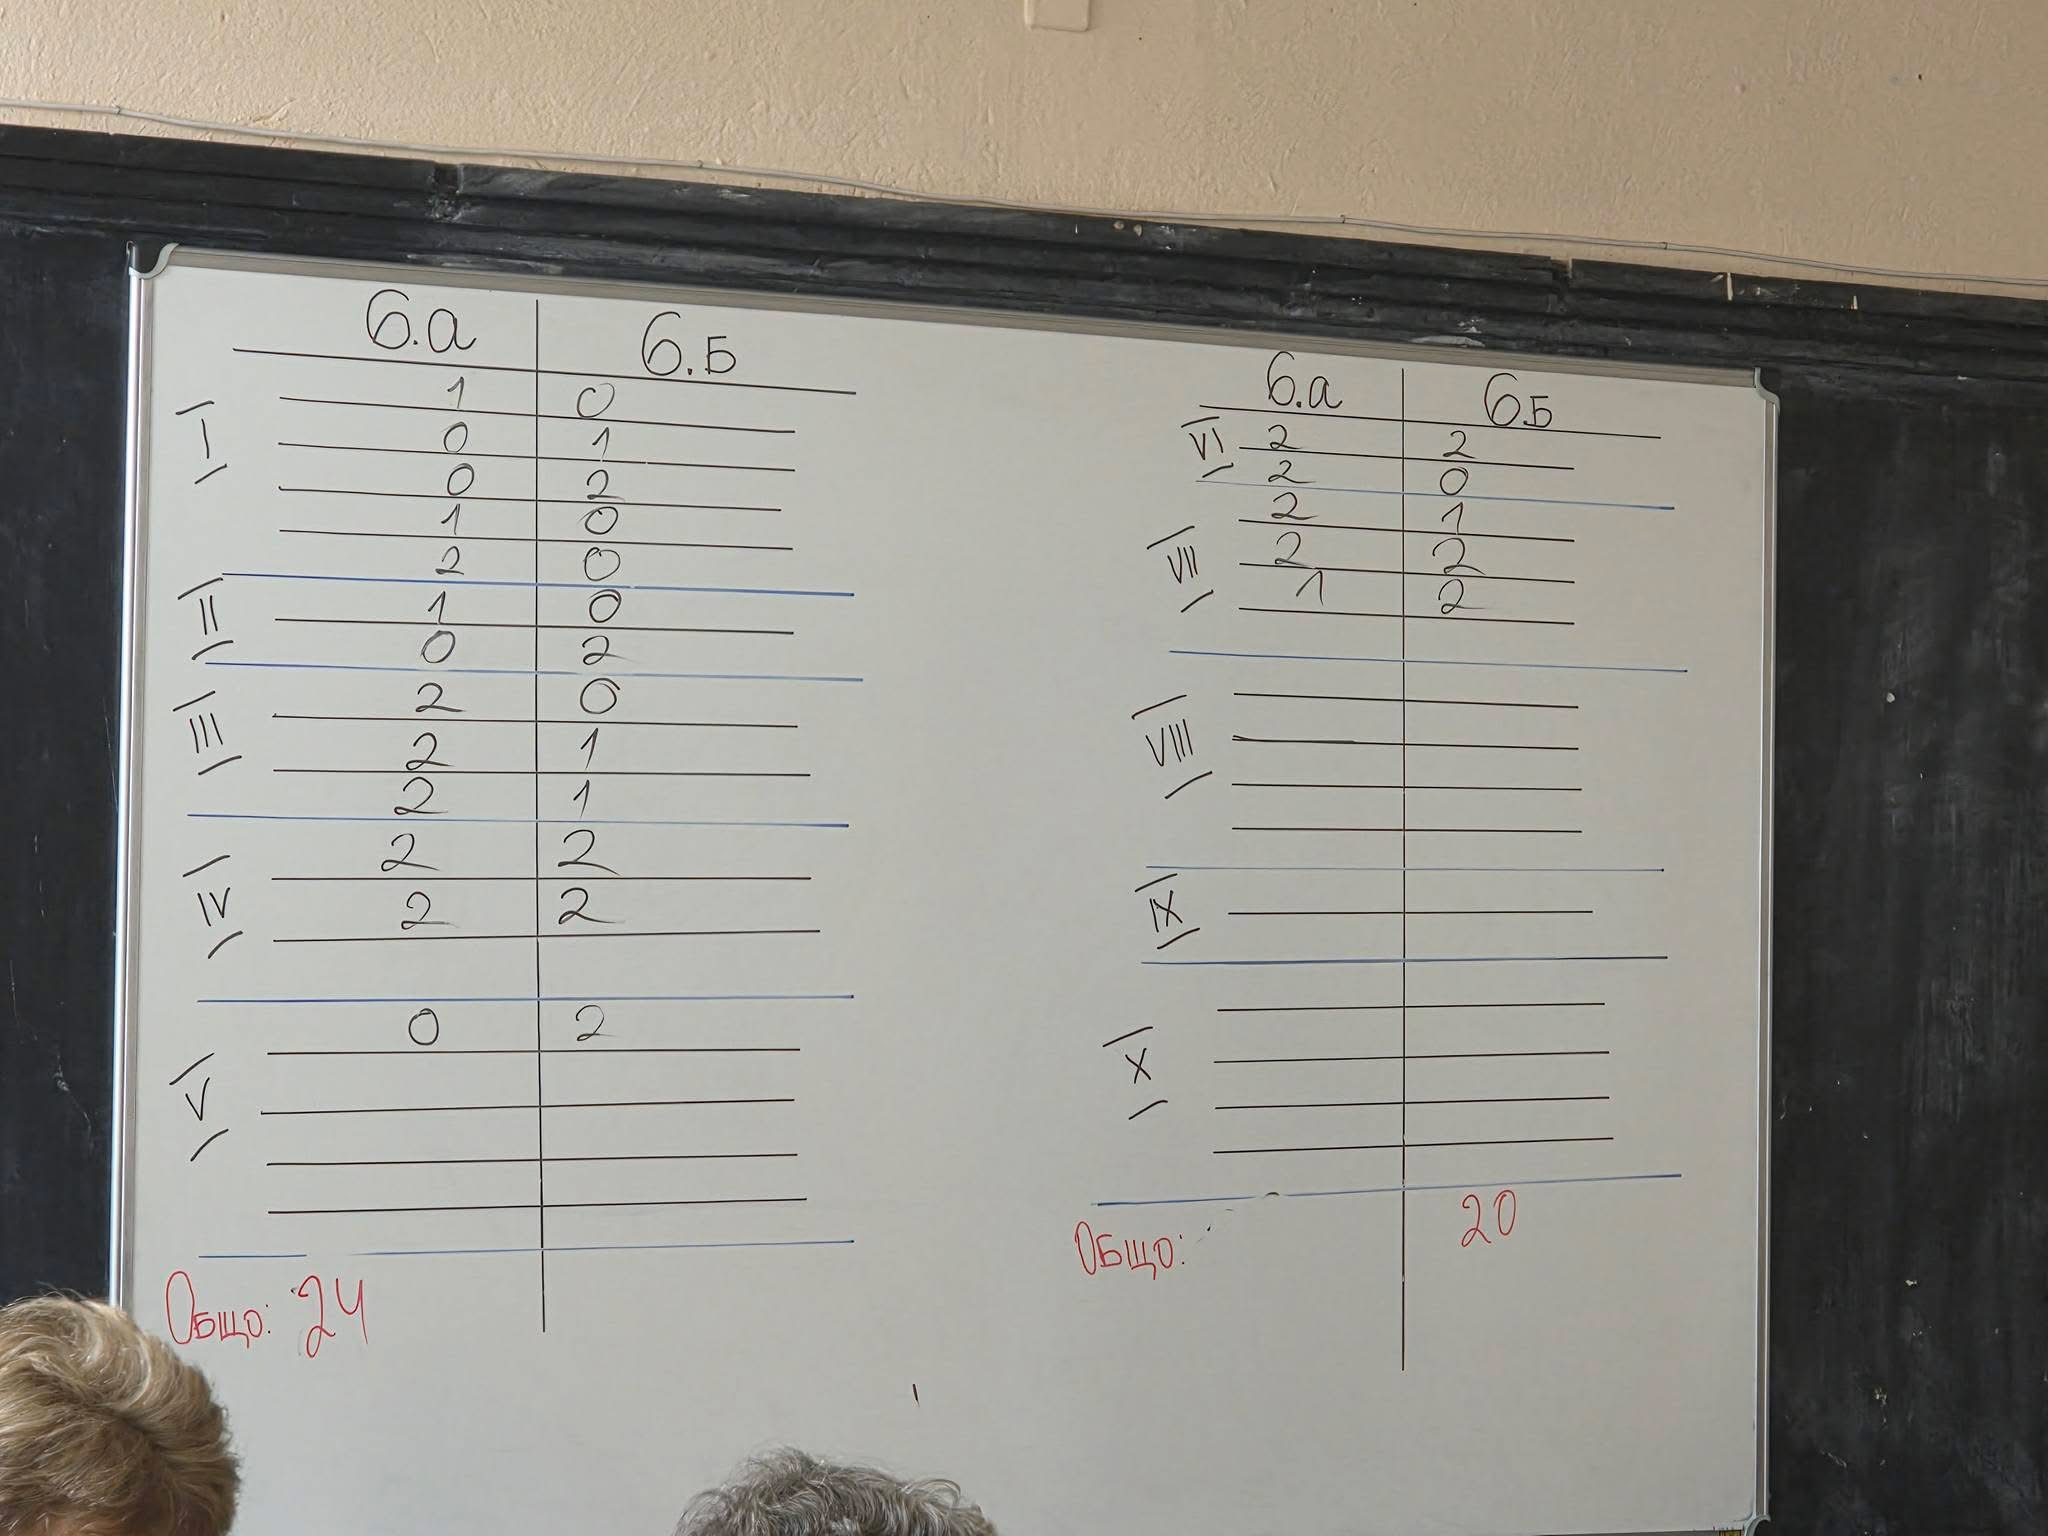 6.а 6.Б
I
1 0
0 1
0 2
1 0
2 0
II
1 0
0 2
III
2 0
2 1
2 1
IV
2 2
2 2
V
0 2
Общо: 24
6.а 6.Б
VI
2 2
2 0
VII
2 1
2 2
1 2
VIII
IX
X
Общо: 20